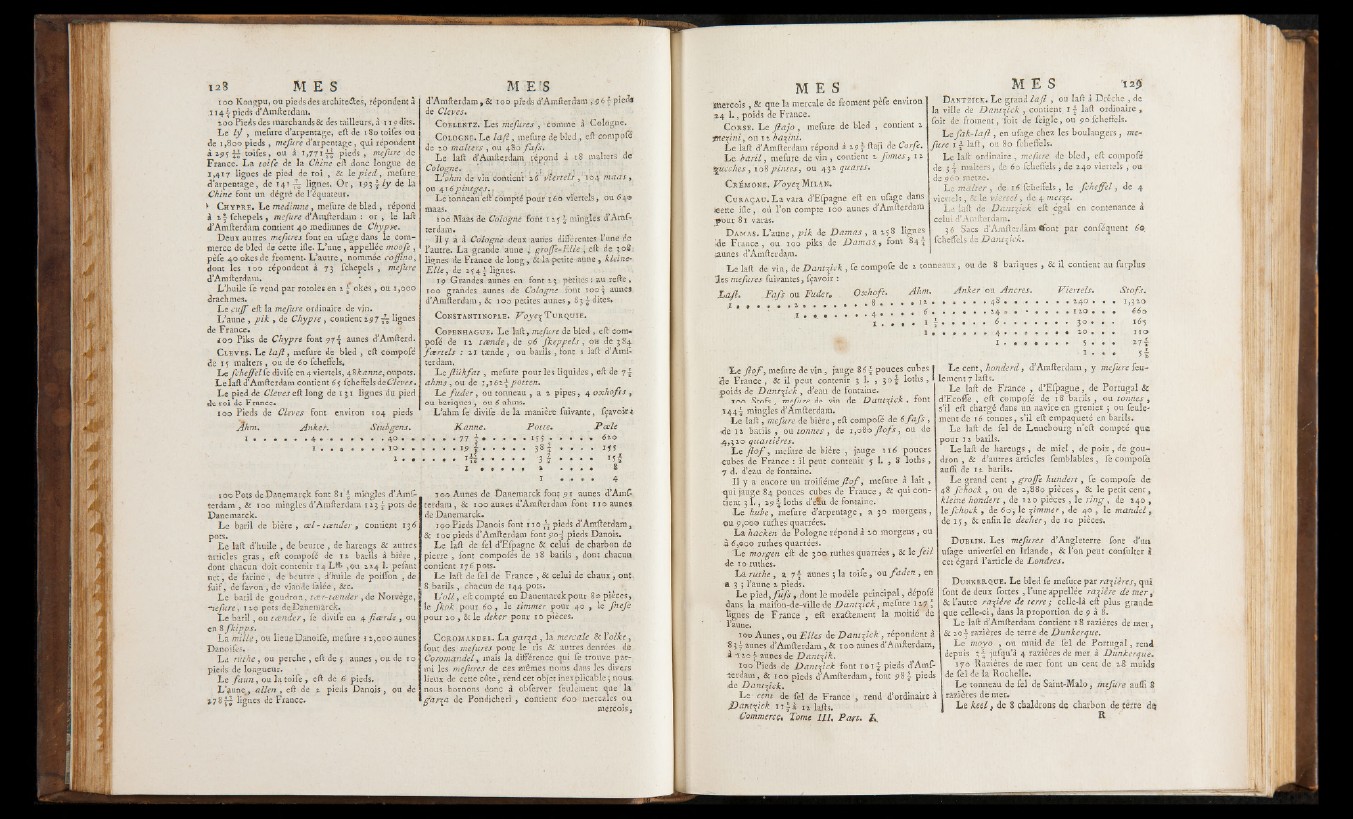 128 MES MES
100 Kongpu, ou pieds des architectes, répondent à
114 1/2 pieds d'Amsterdam.
100 Pieds des marchands & des tailleurs, à 119 dits.
Le ly, mesure d'arpentage, est de 180 toises ou
de 1,800 pieds, mesure d'arpentage, qui répondent
à 295 toises, ou à 1,771 pieds, mesure de
France. La toise de la Chine est donc longue de
1,417 lignes de pied de roi, & le pied, mesure
d'arpentage, de 141 lignes. Or, 193 ly de la
Chine font un dégré de l'équateur.
CHYPRE. Le medimne, mesure de bled, répond
à 2 schepels, mesure d'Amsterdam : or, le last
d'Amsterdam contient 40 medimnes de Chypre.
Deux autres mesures sont en usage dans le com-
merce de bled de cette isle. L'une, appellée moose,
pèse 40 okes de froment. L'autre, nommée coffino,
dont les 100 répondent à 73 schepels, mesure
d'Amsterdam.
L'huile se vend par rotoles en 2 okes, ou 1,000
drachmes.
Le cuff est la mesure ordinaire de vin.
L'aune, pik, de Chypre, contient 297 lignes
de France.
100 Piks de Chypre font 97 aunes d'Amsterd.
CLEVES. Le last, mesure de bled, est composé
de 15 malters, ou de 60 scheffels.
Le scheffel se divise en 4 viertels, 48 kanne, ou pots.
Le last d'Amsterdam contient 65 scheffels de Cleves.
Le pied de Cleves est long de 131 lignes du pied
de roi de France.
100 Pieds de Cleves font environ 104 pieds
d'Amsterdam, & 100 pieds d'Amsterdam, 96 pieds
de Cleves.
COBLENTZ. Les mesures, comme à Cologne.
COLOGNE. Le last, mesure de bled, est composé
de 20 malters, ou 480 fass.
Le last d'Amsterdam répond à 18 malters de
Cologne.
L'ohm de vin contient 26 viertels, 104 maas,
ou 416 pintges.
Le tonneau est compté pour 160 viertels, ou 640
maas.
100 Maas de Cologne font 125 mingles d'Ams-
terdam.
Il y a à Cologne deux aunes différentes l'une de
l'autre. La grande aune, grosse-Elle, est de 308
lignes de France de long, & la petite aune, kleine-
Elle, de 254 lignes.
19 Grandes aunes en font 23 petites : au reste,
100 grandes aunes de Cologne font 100 aunes
d'Amsterdam, & 100 petites aunes, 83 dites.
CONSTANTINOPLE. Voyez TURQUIE.
COPENHAGUE. Le last, mesure de bled, est com-
posé de 12 tænde, de 96 skeppels, ou de 384
færtels : 21 tænde, ou barils, font 1 last d'Ams-
terdam.
Le stükfat, mesure pour les liquides, est de 7 1/2
ahms, ou de 1,162 1/2 potten.
Le fuder, ou tonneau, a 2 pipes, 4 oxhofts,
ou bariques, ou 6 ahms.
L'ahm se divise de la manière suivante, sçavoir :
Ahm. Anker. Stubgens. Kanne. Potte. Pœle
1 . . . . 4 . . . . 40 . . . . 77 1/2 . . . . 155 . . . . 620
1 . . . . 10 . . . . 19 . . . . 38 . . . . 155
1 . . . . 1 . . . . 3 . . . . 15 1/2
1 . . . . 2 . . . . 8
1 . . . . 4
100 Pots de Danemarck font 81 mingles d'Ams-
terdam, & 100 mingles d'Amsterdam 123 pots de
Danemarck.
Le baril de bière, œl-tænder, contient 136
pots.
Le last d'huile, de beurre, de harengs & autres
articles gras, est composé de 12 barils à bière,
dont chacun doit contenir 14 L℔, ou 224 l. pesant
net, de farine, de beurre, d'huile de poisson, de
suif, de savon, de viande salée, &c.
Le baril de goudron, tær-tænder, de Norvège,
mesure, 120 pots de Danemarck.
Le baril, ou tænder, se divise en 4 fiærde, ou
en 8 skipps.
La mille, ou lieue Danoise, mesure 12,000 aunes
Danoises.
La ruthe, ou perche, est de 5 aunes, ou de 10
pieds de longueur.
Le faun, ou la toise, est de 6 pieds.
L'aune, allen, est de 2 pieds Danois, ou de
278 lignes de France.
100 Aunes de Danemarck font 91 aunes d'Ams-
terdam, & 100 aunes d'Amsterdam font 110 aunes
de Danemarck.
100 Pieds Danois font 110 pieds d'Amsterdam,
& 100 pieds d'Amsterdam font 90 pieds Danois.
Le last de sel d'Espagne & celui de charbon de
pierre, sont composés de 18 barils, dont chacun
contient 176 pots.
Le last de sel de France, & celui de chaux, ont
8 barils, chacun de 144 pots.
L'oll, est compté en Danemarck pour 80 pièces,
le skok pour 60, le timmer pour 40, le snese
pour 20, & le deker pour 10 pièces.
COROMANDEL. La garza, la mercale & l'olke,
sont des mesures pour le ris & autres denrées de
Coromandel, mais la différence qui se trouve par-
mi les mesures de ces mêmes noms dans les divers
lieux de cette côte, rend cet objet inexplicable ; nous
nous bornons donc à observer seulement que la
garza de Pondicheri, contient 600 mercales ou
mercois,
MES MES 129
mercois, & que la mercale de froment pèse environ
24 l., poids de France.
CORSE. Le stajo, mesure de bled, contient 2
mezini, ou 12 bazini.
Le last d'Amsterdam répond à 29 staji de Corse.
Le baril, mesure de vin, contient 2 somes, 12
zucches, 108 pintes, ou 432 quares.
CRÉMONE. Voyez MILAN.
CURAÇAU. La vara d'Espagne est en usage dans
cette isle, où l'on compte 100 aunes d'Amsterdam
pour 81 varas.
DAMAS. L'aune, pik de Damas, a 258 lignes
de France, ou 100 piks de Damas, font 84
aunes d'Amsterdam.
DANTZICK. Le grand last, ou last à Drêche, de
la ville de Dantzick, contient 1 1/2 last ordinaire,
soit de froment, soit de seigle, ou 90 scheffels.
Le sak-last, en usage chez les boulangers, me-
sure 1 last, ou 80 scheffels.
Le last ordinaire, mesure de bled, est composé
de 3 malters, de 60 scheffels, de 240 viertels, ou
de 960 metze.
Le malter, de 16 scheffels, le scheffel, de 4
viertels, & le viertel, de 4 metze.
Le last de Dantzick est égal en contenance à
celui d'Amsterdam.
36 Sacs d'Amsterdam font par conséquent 60
scheffels de Dantzick.
Le last de vin, de Dantzick, se compose de 2 tonneaux, ou de 8 bariques, & il contient au surplus
les mesures suivantes, sçavoir :
Last. Fass ou Fuder. Oxhoft. Ahm. Anker ou Ancres. Viertels. Stofs.
1 . . . . 2 . . . . 8 . . . . 12 . . . . 48 . . . . 240 . . . . 1,320
1 . . . . 4 . . . . 6 . . . . 24 . . . . 120 . . . . 660
1 . . . . 1 1/2 . . . . 6 . . . . 30 . . . . 165
1 . . . . 4 . . . . 20 . . . . 110
1 . . . . 5 . . . . 27 1/2
1 . . . . 5 1/2
Le stof, mesure de vin, jauge 86 pouces cubes
de France, & il peut contenir 3 l., 30 loths,
poids de Dantzick, d'eau de fontaine.
100 Stofs, mesure de vin de Dantzick, font
144 mingles d'Amsterdam.
Le last, mesure de bière, est composé de 6 fass,
de 12 barils, ou tonnes, de 1,080 stofs, ou de
4,320 quartières.
Le stof, mesure de bière, jauge 116 pouces
cubes de France : il peut contenir 5 l., 8 loths,
7 d. d'eau de fontaine.
Il y a encore un troisième stof, mesure à lait,
qui jauge 84 pouces cubes de France, & qui con-
tient 3 l., 29 loths d'eau de fontaine.
Le hube, mesure d'arpentage, a 30 morgens,
ou 9,000 ruthes quarrées.
La hacken de Pologne répond à 20 morgens, ou
à 6,000 ruthes quarrées.
Le morgen est de 300 ruthes quarrées, & le seil
de 10 ruthes.
La ruthe, a 7 1/2 aunes ; la toise, ou faden, en
a 3 ; l'aune 2 pieds.
Le pied, fuss, dont le modèle principal, déposé
dans la maison-de-ville de Dantzick, mesure 127
lignes de France, est exactement la moitié de
l'aune.
100 Aunes, ou Elles de Dantzick, répondent à
83 aunes d'Amsterdam, & 100 aunes d'Amsterdam,
à 120 aunes de Dantzik.
100 Pieds de Dantzick font 101 pieds d'Ams-
terdam, & 100 pieds d'Amsterdam, font 98 pieds
de Dantzick.
Le cent de sel de France, rend d'ordinaire à
Dantzick 11 1/2 à 12 lasts.
Commerce. Tome III. Part. I.
Le cent, hunderd, d'Amsterdam, y mesure seu-
lement 7 lasts.
Le last de France, d'Espagne, de Portugal &
d'Ecosse, est composé de 18 barils, ou tonnes,
s'il est chargé dans un navire en grenier ; ou seule-
ment de 16 tonnes, s'il est empaqueté en barils.
Le last de sel de Lunebourg n'est compté que
pour 12 barils.
Le last de harengs, de miel, de poix, de gou-
dron, & d'autres articles semblables, se compose
aussi de 12 barils.
Le grand cent, grosse hundert, se compose de
48 schock, ou de 2,880 pièces, & le petit cent,
kleine hundert, de 120 pièces, le ring, de 240,
le schock, de 60, le zimmer, de 40, le mandel,
de 15, & enfin le decher, de 10 pièces.
DUBLIN. Les mesures d'Angleterre sont d'un
usage universel en Irlande, & l'on peut consulter à
cet égard l'article de Londres.
DUNKERQUE. Le bled se mesure par razières, qui
sont de deux sortes, l'une appellée razière de mer,
& l'autre razière de terre ; celle-là est plus grande
que celle-ci, dans la proportion de 9 à 8.
Le last d'Amsterdam contient 18 razières de mer,
& 20 razières de terre de Dunkerque.
Le moyo, ou muid de sel de Portugal, rend
depuis 3 1/2 jusqu'à 4 razières de mer à Dunkerque.
170 Razières de mer font un cent de 28 muids
de sel de la Rochelle.
Le tonneau de sel de Saint-Malo, mesure aussi 8
razières de mer.
Le keel, de 8 chaldrons de charbon de terre de
R